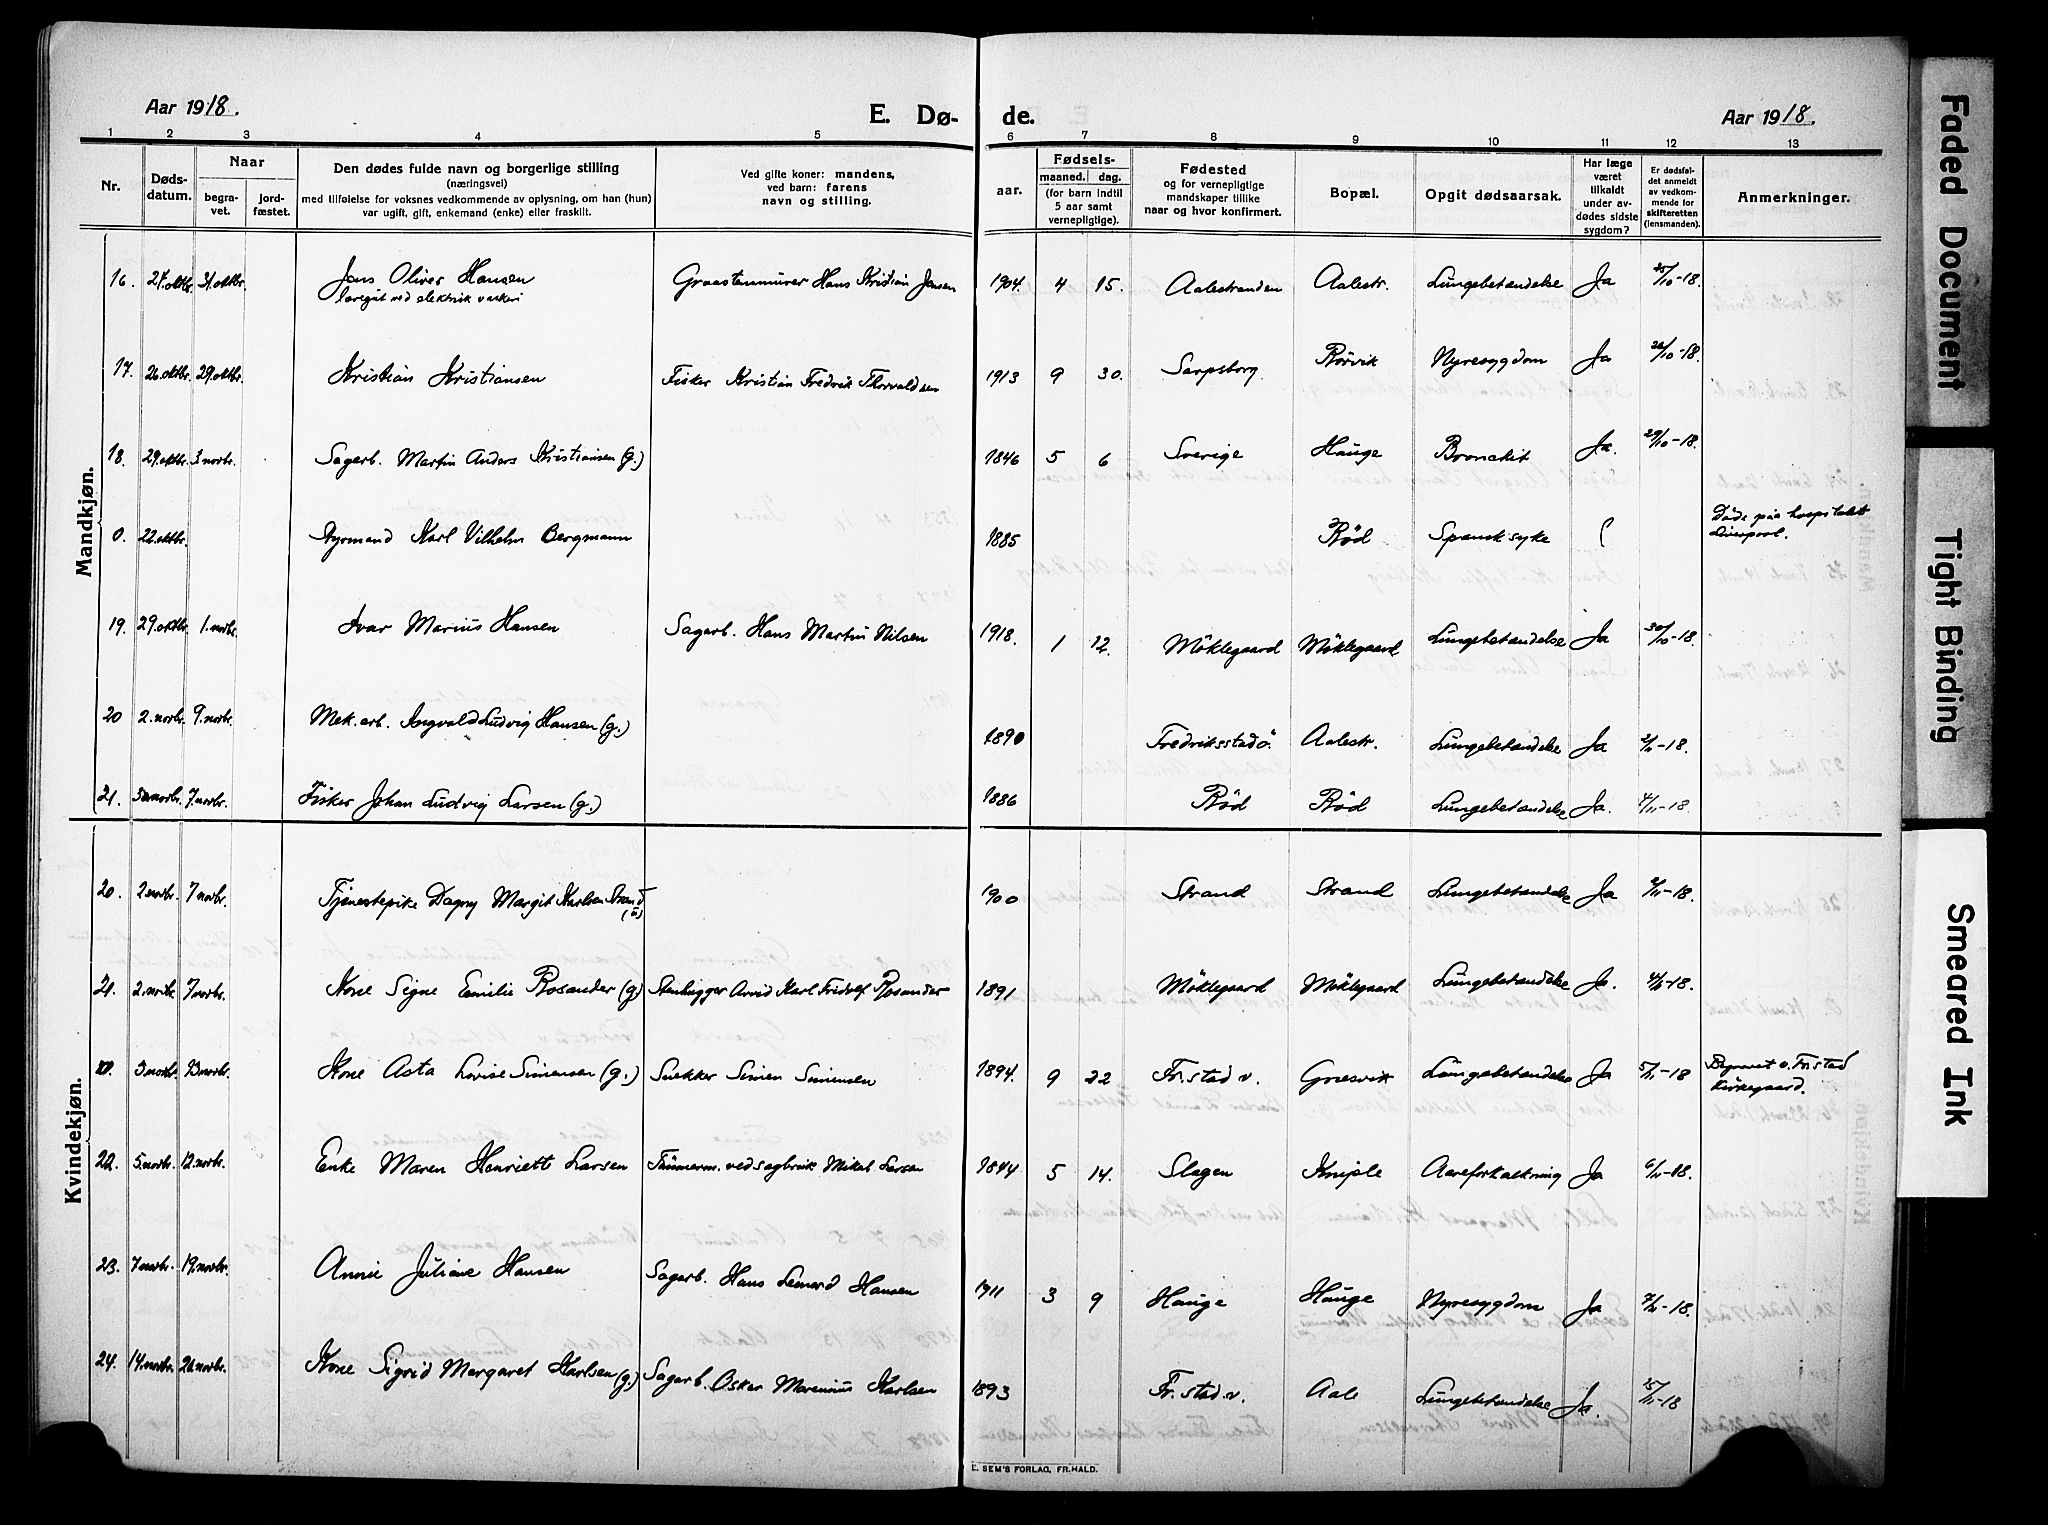 Aar 1918.
E. Dø-
de.
Aar 1918.
1 2 3 4 5 6 7 8 9 10 11 12 13
Nr.
Døds-
datum.
Naar
begra-
vet.
jord-
fæstet.
Den dødes fulde navn og borgerlige stilling
(næringsvei)
med tilføielse for voksnes vedkommende av oplysning, om han (hun)
var ugift, gift, enkemand (enke) eller fraskilt.
Ved gifte koner: mandens,
ved barn: farens
navn og stilling.
aar.
Fødsels-
maaned. dag.
(for barn indtil
5 aar samt
vernepligtige).
Fødested
og for vernepligtige
mandskaper tillike
naar og hvor konfirmert.
Bopæl.
Opgit dødsaarsak.
Har læge
været
tilkaldt
under av-
dødes sidste
sygdom?
Er dødsfal-
det anmeldt
av vedkom-
mende for
skifteretten
(lensmanden).
Anmerkninger.
Mandkjøn.
16. 27. oktbr. 31. oktbr. Jens Oliver Hansen Graastenmurer Hans Kristian Jensen 1904. 4 15. Aalestranden Aalestr. Lungebetændelse Ja 25/10-18.
ved elektrisk verkeri
17. 26. oktbr. 29. oktbr. Kristian Kristiansen Fisker Kristian Fredrik Thorvaldsen 1913 9 30. Sarpsborg. Rørvik Nyresygdom Ja 28/10-18.
18. 29. oktbr. 3 novbr. Sagarb. Martin Anders Kristiansen (g.) 1846 5 6 Sverige Hauge Bronchit Ja. 29/10-18.
0. 22. oktbr. Styrmand Karl Vilhelm Bergmann 1885 Rød Spansk syke ? Døde paa hospitalet
Liverpool.
19. 29. oktbr. 1. novbr. Ivar Marius Hansen Sagarb. Hans Martin Nilsen 1918. 1 12. Møklegaard Møklegaard Lungebetændelse Ja 30/10-18.
20 2. novbr. 9. novbr. Mek. arb. Ingvald Ludvig Hansen (g.) 1890 Fredriksstad ø. Aalestr. Lungebetændelse Ja 2/11-18.
21. 3. novbr. 7. novbr. Fisker Johan Ludvig Larsen (g.) 1886 Rød Rød Lungebetændelse Ja. 4/11-18.
Kvindekjøn.
20. 2 novbr. 7 novbr. Tjenestepike Dagny Margit Karlsen Strand
(u) 1900 Strand Strand Lungebetændelse Ja 2/11-18.
21. 2. novbr. 7 novbr. Kone Signe Emilie Rosander (g) Stenhugger Arvid Karl Fridolf Rosander 1891 Møklegaard Møklegaard Lungebetændelse Ja. 4/11-18.
0. 3 novbr. 13 novbr. Kone Asta Lovise Simensen (g.) Snekker Simen Simensen 1894. 9 22 Fr.stad v. Gresvik Lungebetændelse Ja 5/11-18 Begravet v. Fr.stad
kirkegaard.
22. 5. novbr. 12. novbr. Enke Maren Henriette Larsen Tømmerm. ved sagbruk Mikal Larsen 1844 5 14. Slagen Kniple Aareforkalkning Ja 6/11-18.
23. 7 novbr. 19. novbr. Annie Juliane Hansen Sagarb. Hans Lenard Hansen 1911 3 9 Hauge Hauge Nyresygdom Ja 7/11-18.
24. 14. novbr. 21. novbr. Kone Sigrid Margaret Karlsen (g.) Sagarb. Oskar Marenius Karlsen 1893 Fr.stad. v. Aale Lungebetændelse Ja. 15/11-18
E. SEM'S FORLAG, FR.HALD.
Faded Document
Tight Binding
Smeared Ink